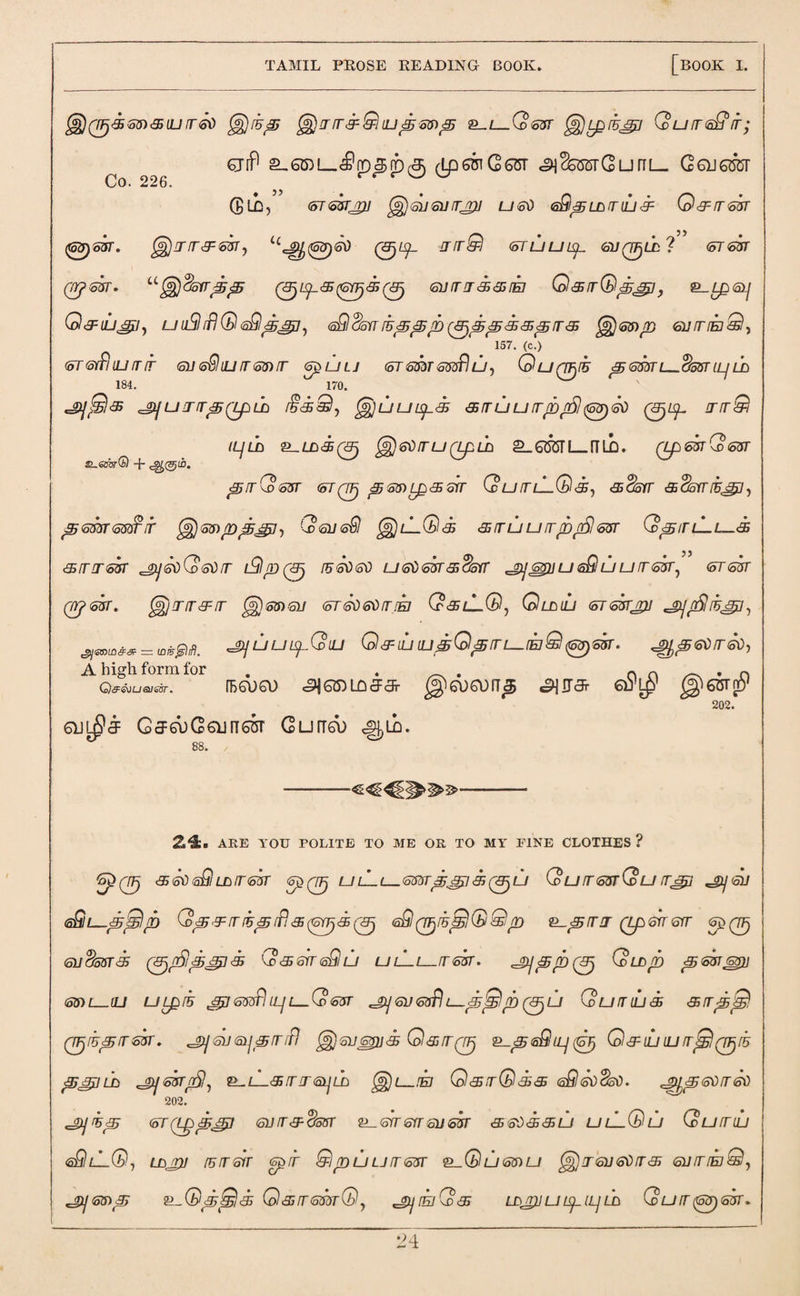 TAMIL PROSE READING BOOK. [BOOK I.
இருக்கையால் இந்த இராச்சியத்தை உடனே இழந்து போவீர்;
Co. 226. ஏரி உடைகிறதற்கு முன்னே அணைபோட வேண்
டும்," என்று இவ்வாறு பல விதமாய்ச் சொன்
னான். இராசன், "ஆனால் குடி ராசி எப்படி வரும்?" என்
றான். "இளைத்த குடிகளுக்கு வாரக்கங் கொடுத்து, உழவு
செய்து, பயிரிடுவித்து, விளைந்ததற்குத்தக்கதாக இறை வாங்கி,
157. (c.)
எளியார் வலியாரை ஒப்ப எண்ணிப், பெருந் தண்டனையும்
184. 170.
அதிக அபராதமும் நீக்கி, இப்படிக் காப்பாற்றினால் குடி ராசி
யும் உமக்கு இலாபமும் உண்டாம். முன்னே
உண்டு + ஆகும்.
தானே எரு தழைகள் போட்டுக், களை களைந்து,
தண்ணீர் இறைத்து, வேலி இட்டுக் காப்பாற்றின தோட்டக்
காரன் அல்லலோ பிற்கு நல்ல பலன்களை அனுபவிப்பான்," என்
றான். இராசா இவை எல்லாங் கேட்டு, மெய் என்று அறிந்து,
அமைச்சு = மந்திரி. அப்படியே செய்யத்தொடங்கினான். ஆதலால்,
A high form for நல்ல அமைச்சு இல்லாத அரசு விழி இன்றி
செல்பவன்.
202.
வழிச் செல்வோன் போல் ஆம்.
88.
24. ARE YOU POLITE TO ME OR TO MY FINE CLOTHES?
ஒரு கல்விமான் ஒரு பட்டணத்துக்குப் போனபோது அவ்
விடத்திற் தெசாந்தரிகளுக்கு விருந்திடுகிற உதார முள்ள ஒரு
வனைக் குறித்துக் கேள்விப் பட்டான். அதற்கு மெற் தன்னு
டைய பழந் துணியுடனே அவனிடத்திற்குப் போய்க் காத்தி
ருந்தான். அவ்வுதாரி இவனுக் கொரு உதவியுஞ் செய்யாதிருந்
ததும் அன்றி, உட்காரவும் இடங் கொடுக்க வில்லை. ஆதலால்
202.
அந்த எழுத்து வாசனை உள்ளவன் கலக்கப் பட்டுப் போய்
விட்டு, மறு நாள் ஓர் சிறப்பான உடுப்பை இரவலாக வாங்கி,
அதை உடுத்திக் கொண்டு, அங்கே மறுபடியும் போனான்.
24